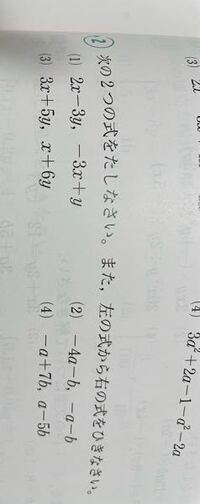 (4) 3a²+2a-1-a²-2a
② 次の2つの式をたしなさい。また，左の式から右の式をひきなさい。
(1) 2x-3y, -3x+y
(2) -4a-b, -a-b
(3) 3x+5y, x+6y
(4) -a+7b, a-5b